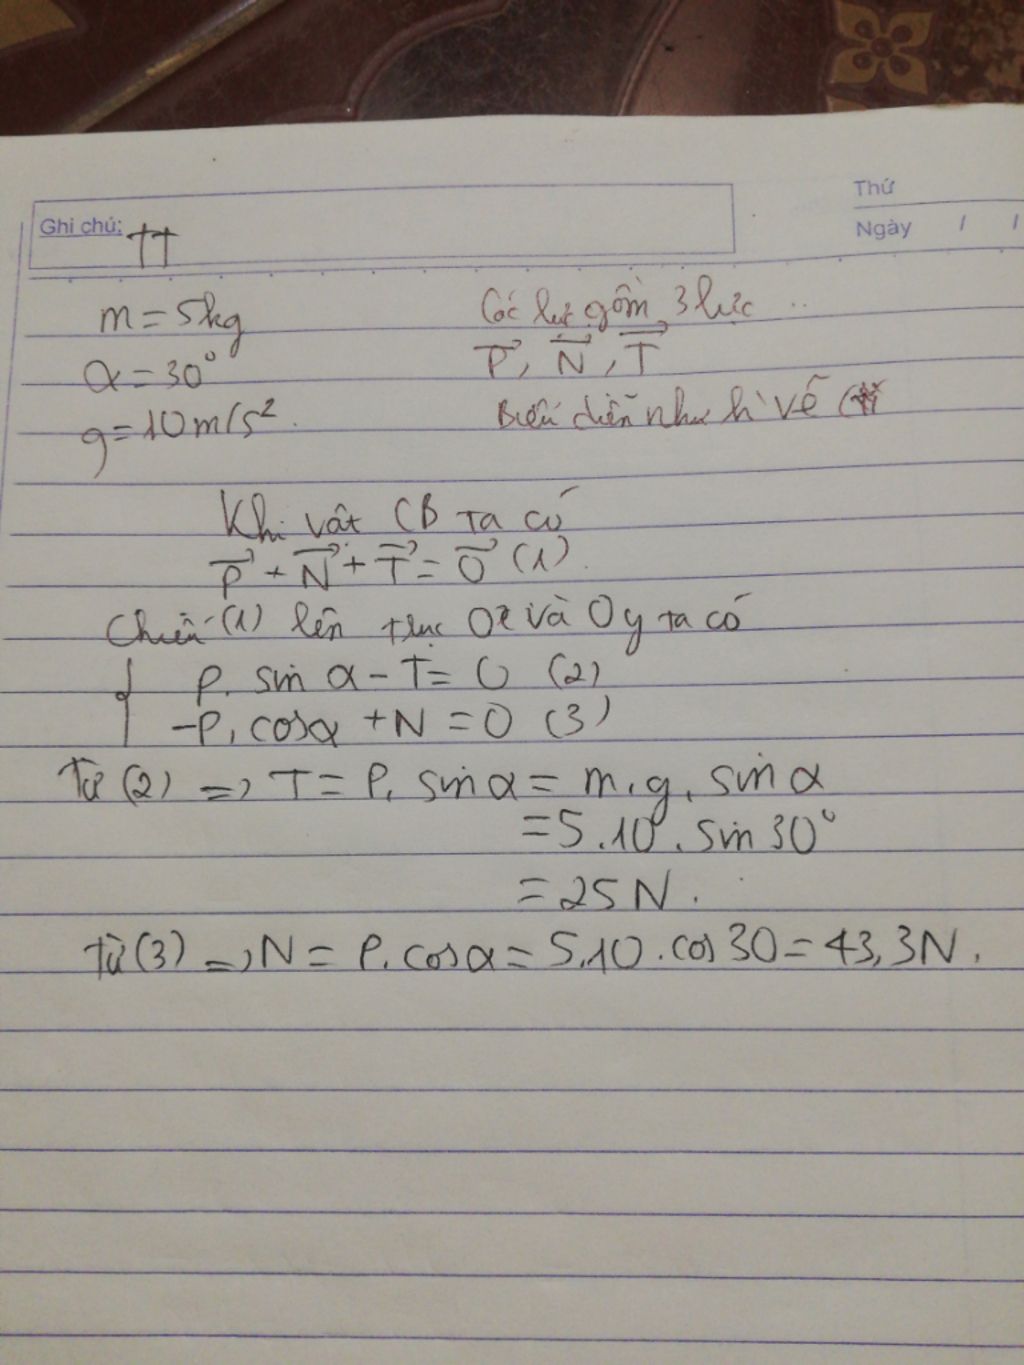 Thứ
Ghi chú: TT
Ngày / /
m = 5kg
Các lực gồm 3 lực ..
α = 30°
P⃗, N⃗, T⃗
g = 10m/s².
Biểu diễn như h` vẽ
Khi vật CB ta có
P⃗ + N⃗ + T⃗ = 0⃗ (1).
Chiếu (1) lên trục Ox và Oy ta có
{ P. sin α - T = 0 (2)
-P. cosα + N = 0 (3)
Từ (2) => T = P. sin α = m.g. sin α
= 5.10. sin 30°
= 25 N.
Từ (3) => N = P. cosα = 5.10. cos 30 = 43,3N.